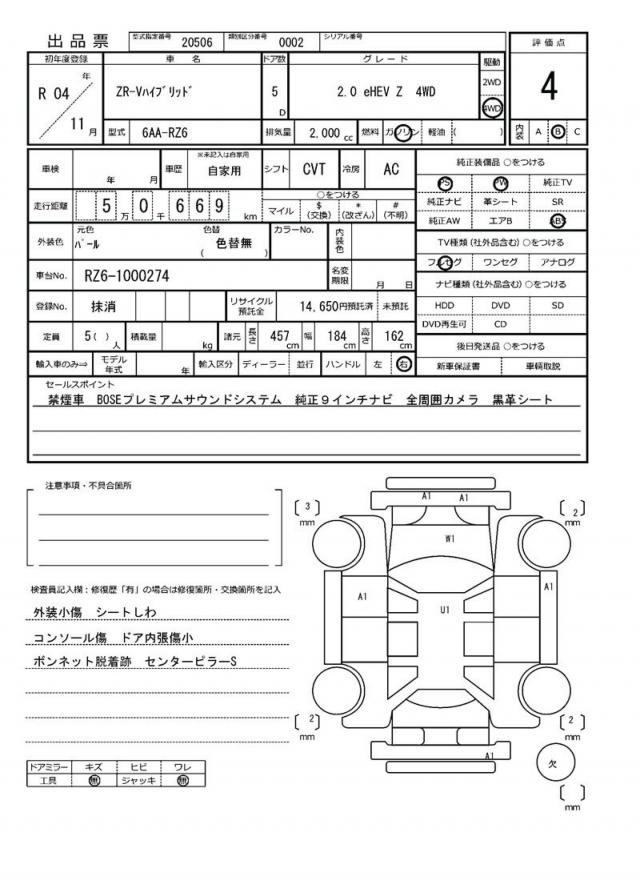 出品票 型式指定番号 20506 類別区分番号 0002 シリアル番号
評価点
初年度登録 車名 ドア数 グレード 駆動
R 04 年 ZR-Vﾊｲﾌﾞﾘｯﾄﾞ 5 D 2.0 eHEV Z 4WD 2WD 4
11 月 4WD
型式 6AA-RZ6 排気量 2,000 cc 燃料 ガソリン 軽油 ( ) 内装 A B C
車検 年 月 車歴 ※未記入は自家用 自家用 シフト CVT 冷房 AC 純正装備品 ○をつける
PS PW 純正TV
走行距離 5 万 0 千 6 6 9 km ○をつける 純正ナビ 革シート SR
マイル $(交換) *(改ざん) #(不明) 純正AW エアB ABS
外装色 元色 ﾊﾟｰﾙ 色替 ( 色替無 ) カラーNo. 内装色 TV種類(社外品含む)○をつける
フルセグ ワンセグ アナログ
車台No. RZ6-1000274 名変期限 月 日 ナビ種類(社外品含む)○をつける
登録No. 抹消 リサイクル預託金 14,650円預託済 未預託 HDD DVD SD
DVD再生可 CD
定員 5( ) 人 積載量 kg 諸元 長さ 457 cm 幅 184 cm 高さ 162 cm 後日発送品 ○をつける
輸入車のみ⇒ モデル年式 年 輸入区分 ディーラー 並行 ハンドル 左 右 新車保証書 車輌取説
セールスポイント
禁煙車 BOSEプレミアムサウンドシステム 純正９インチナビ 全周囲カメラ 黒革シート
注意事項・不具合箇所
A1 A1
3 mm 2 mm
W1
検査員記入欄：修復歴「有」の場合は修復箇所・交換箇所を記入
A1 A1
外装小傷 シートしわ U1
コンソール傷 ドア内張傷小
ボンネット脱着跡 センターピラーS
2 mm 2 mm
A1
欠
ドアミラー キズ ヒビ ワレ
工具 無 ジャッキ 無
mm